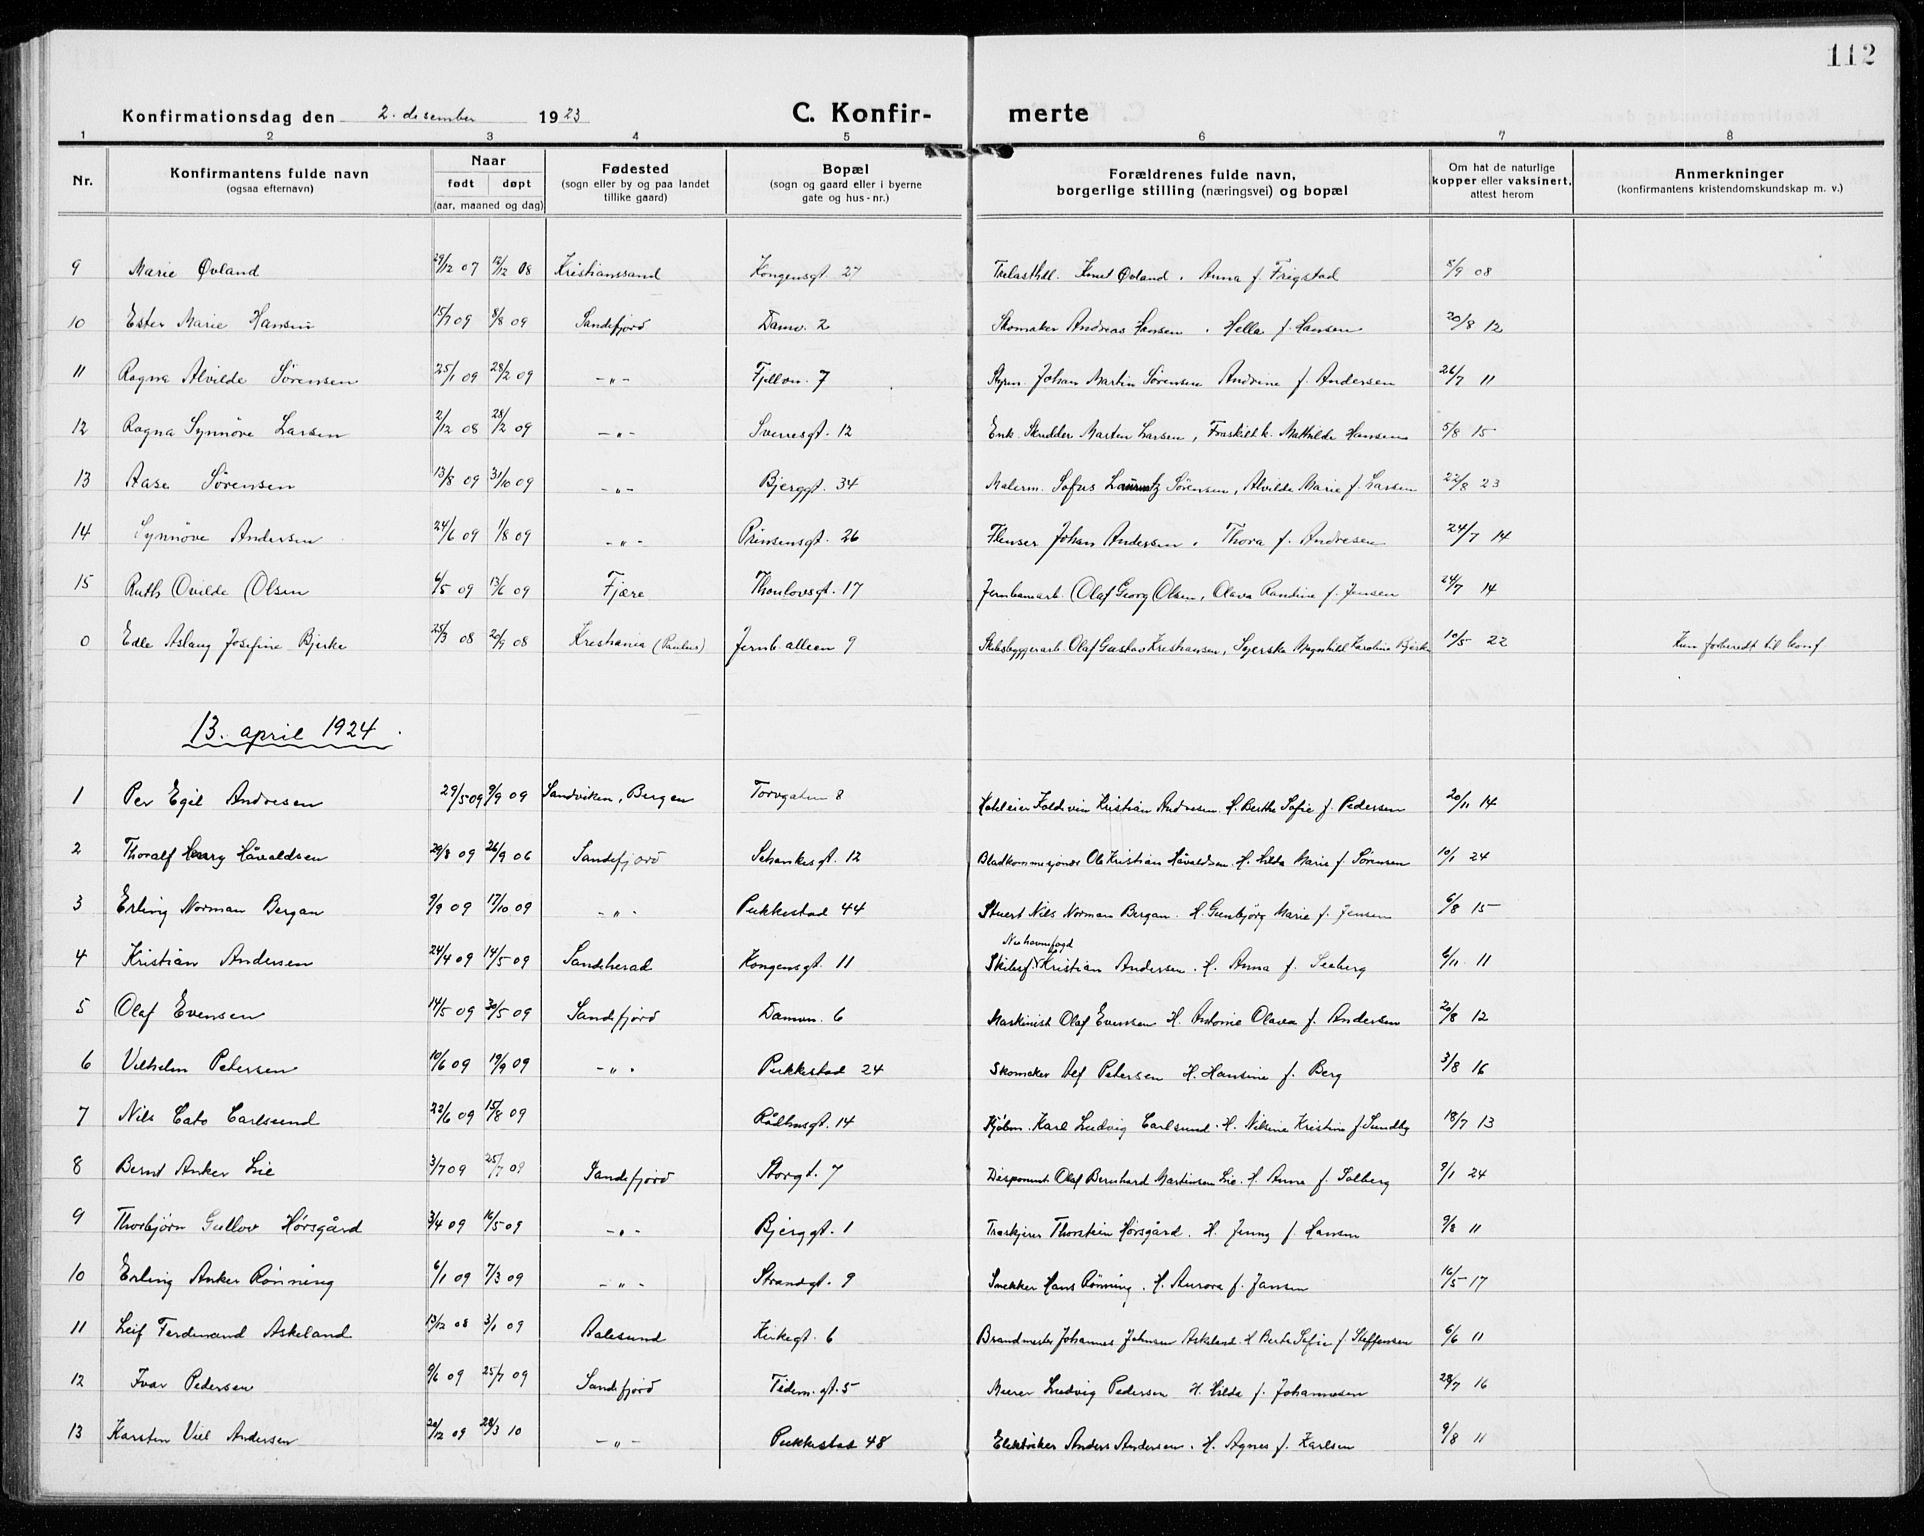 112
Konfirmationsdag den 2. desember 1923 C. Konfir- merte
1 2 3 4 5 6 7 8
Nr. Konfirmantens fulde navn (ogsaa efternavn) Naar født døpt (aar, maaned og dag) Fødested (sogn eller by og paa landet tillike gaard) Bopæl (sogn og gaard eller i byerne gate og hus-nr.) Forældrenes fulde navn, borgerlige stilling (næringsvei) og bopæl Om hat de naturlige kopper eller vaksinert, attest herom Anmerkninger (konfirmantens kristendomskundskap m. v.)
9 Marie Øvland 29/12 07 12/12 08 Kristianssand Kongensgt. 27 Trelasthl. Knut Øvland. Anna f. Frigstad 8/9 08
10 Ester Marie Hansen 15/7 09 8/8 09 Sandefjord Damv. 2 Skomaker Andreas Hansen. Hella f. Hansen 20/8 12
11 Ragna Alvilde Sørensen 25/1 09 28/2 09 -„- Fjellvn. 7 Styrm. Johan Martin Sørensen Andrine f. Andersen 26/7 11
12 Ragna Synnøve Larsen 2/12 08 28/2 09 -„- Sverresgt. 12 Enk. Skredder Martin Larsen, Fraskilt h. Mathilde Hansen 5/8 15
13 Aase Sørensen 13/8 09 31/10 09 -„- Bjerggt. 34 Malerm. Sofus Lauritz Sørensen, Alvilde Marie f. Larsen 22/8 23
14 Synnøve Andersen 24/6 09 1/8 09 -„- Prinsensgt. 26 Flenser Johan Andersen. Thora f. Andresen 24/7 14
15 Ruth Ovilde Olsen 6/5 09 13/6 09 Fjære Thaulovsgt. 17 Jernbanearb. Olaf Georg Olsen, Olava Randine f. Jensen 24/7 14
0 Edle Aslaug Josefine Bjerke 25/3 08 20/9 08 Kristiania (Paulus) Jernb. alleen 9 Skibsbyggerarb. Olaf Gustav Kristiansen, Syerske Magnhild Karoline Bjerke 10/5 22 Kun forberedt til konf
13. april 1924.
1 Per Egil Andresen 29/5 09 9/9 09 Sandviken, Bergen Torvgaten 8 Hotleier Foldvin Kristian Andresen. H. Berthe Sofie f. Pedersen 20/11 14
2 Thoralf Henry Håvaldsen 29/8 09 26/9 06 Sandefjord Schankesgt. 12 Bladkommisjonær Ole Kristian Håvaldsen. H. Hilda Marie f. Sørensen 10/1 24
3 Erling Norman Bergan 9/9 09 17/10 09 -„- Pukkestad 44 Stuert Nils Norman Bergan. H. Gunbjörg Marie f. Jensen 6/8 15
4 Kristian Andersen 24/4 09 14/5 09 Sandeherad Kongensgt. 11 Skibsf. Kristian Andersen. H. Anna f. Seeberg 6/11 11
5 Olaf Evensen 14/5 09 30/5 09 Sandefjord Damvn. 6 Maskinist Olaf Evensen H. Antonie Olava f. Andersen 20/8 12
6 Vilhelm Petersen 10/6 09 19/9 09 -„- Pukkestad 24 Skomaker Alf Petersen H. Hansine f. Berg 3/8 16
7 Nils Cato Carlsund 22/6 09 15/8 09 Rådhusgt. 14 Kjøbm. Karl Ludvig Carlsund. H. Nilsine Kristine f. Sundby 18/7 13
8 Bernt Anker Lie 3/7 09 25/7 09 Sandefjord Storgt. 7 Disponent Olaf Bernhard Martinsen Lie. H. Anna f. Solberg 9/1 24
9 Thorbjørn Gullov Hørsgård 3/4 09 16/5 09 -„- Bjerggt. 1 Traskjører Thorstein Hørsgård. H. Jenny f. Hansen 9/8 11
10 Erling Anker Rönning 6/1 09 7/3 09 -„- Strandgt. 9 Snekker Hans Rönning. H. Aurora f. Jansen 16/5 17
11 Leif Ferdinand Askeland 13/12 08 3/1 09 Aalesund Kirkegt. 6 Brandmester Johannes Johnsen Askeland H Berta Sofie f. Steffensen 6/6 11
12 Ivar Pedersen 9/6 09 25/7 09 Sandefjord Tidem. gt. 5 Murer Ludvig Pedersen H. Hilda f. Johannesen 28/7 16
13 Karsten Viel Andersen 20/12 09 28/3 10 -„- Pukkestad 48 Elektriker Anders Andersen. H. Agnes f. Karlsen 9/8 11